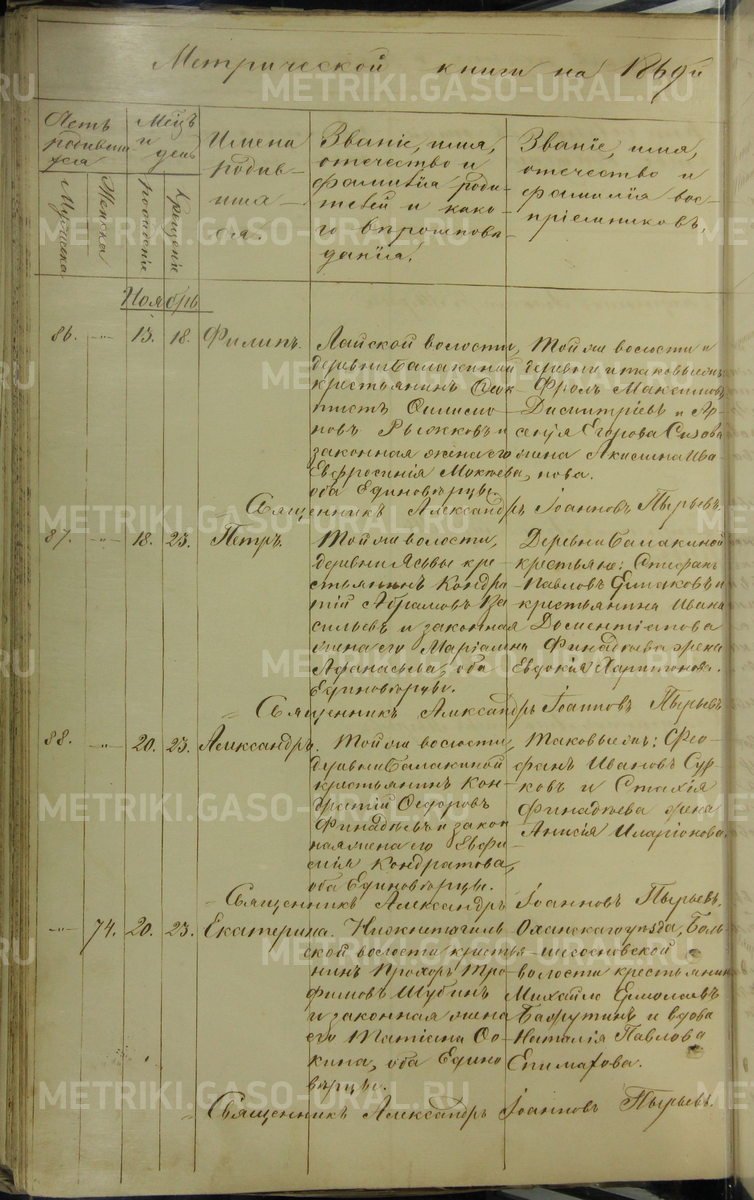 Метрической книги на 1869й
Счетъ родившихся
Мужска
Женска
Мѣсцъ и день
рожденія
крещенія
Имена
родив-
шихся.
Званіе, имя,
отечество и
фамилія роди-
телей и како-
го вѣроисповѣ-
данія.
Званіе, имя,
отечество и
фамилія вос-
пріемниковъ.
Ноябрь
86. 13. 18. Филипъ.
Лайской волости,
деревни Балакиной
крестьянинъ
Рыжковъ и
законная жена его
Евфросинія
оба Единовѣрцы.
Той же волости и
деревни
Фролъ Максимовъ
Димитріевъ и Ар-
сенія Егорова Сизова
жена Акилина Ива-
нова.
Священникъ Александръ Іоанновъ Пырьевъ.
87. 18. 23. Петръ.
Той же волости,
деревни кре-
стьянинъ Кондра-
тій Абрамовъ Ва-
сильевъ и законная
жена его Маріамна
Афанасьева, оба
Единовѣрцы.
Деревни Балакиной
крестьяне: Стефанъ
Павловъ Ермаковъ и
крестьянина Ивана
Дометіанова
Финадѣева жена
Евдокія Харитонова.
Священникъ Александръ Іоанновъ Пырьевъ
88. 20. 23. Александръ.
Той же волости,
деревни Балакиной
крестьянинъ Кон-
дратій Ѳедоровъ
Финадѣевъ и закон-
ная жена его Евфи-
мія Кондратова,
оба Единовѣрцы.
Таковые же: Ѳео-
фанъ Ивановъ Сур-
ковъ и Стахія
Финадѣева жена
Анисія Иларіонова.
Священникъ Александръ Іоанновъ Пырьевъ.
74. 20. 23. Екатерина.
Нижнетагиль-
ской волости кресть-
янинъ Прохоръ Тро-
фимовъ Шубинъ
и законная жена
его Татіана Ѳо-
кина, оба Едино-
вѣрцы.
Оханскаго уѣзда, Боль-
шесосновской
волости крестьянинъ
Михайло Ермолаевъ
и вдова
Наталія Павлова
Епимахова.
Священникъ Александръ Іоанновъ Пырьевъ.
METRIKI.GASO-URAL.RU